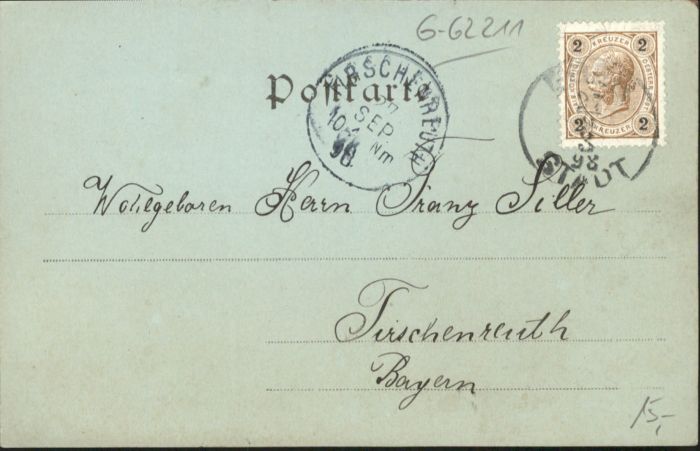 G-62211
Postkarte
TIRSCHENREUTH
SEP
10-
Nm
98
2 KREUZER 2
2 KREUZER 2
98
STADT
Wohlgeboren Herrn Franz Siller
Tirschenreuth
Bayern
15,-